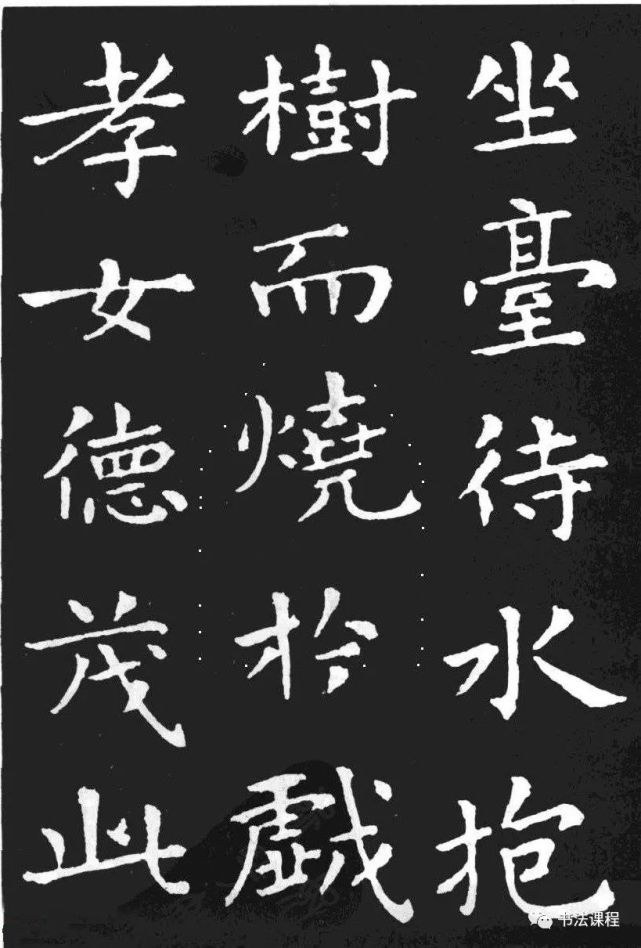 坐臺待水抱
樹而燒扵戯
孝女德茂此
书法课程